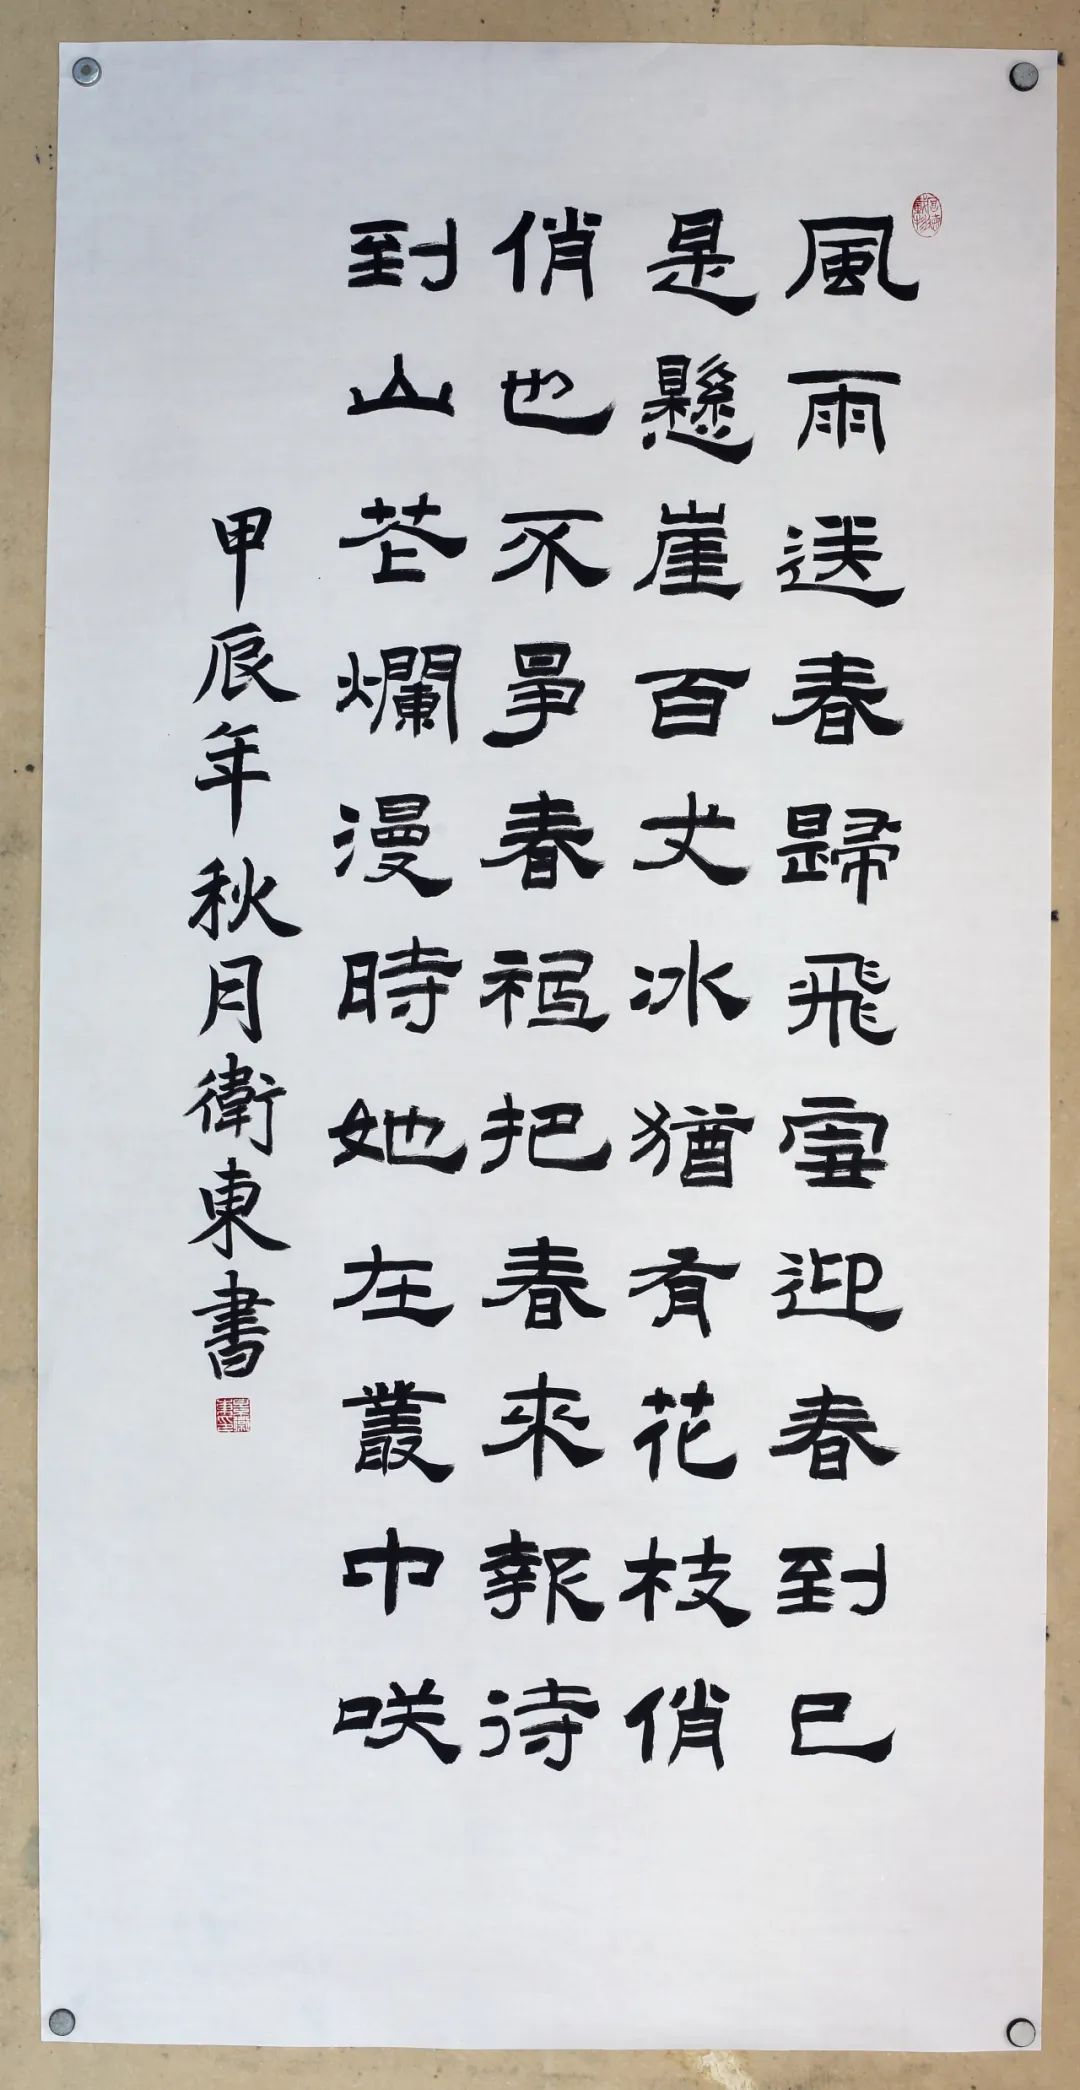 風雨送春歸飛雪迎春到已
是懸崖百丈冰猶有花枝俏
俏也不爭春祇把春來報待
到山花爛漫時她在叢中咲
甲辰年秋月衛東書